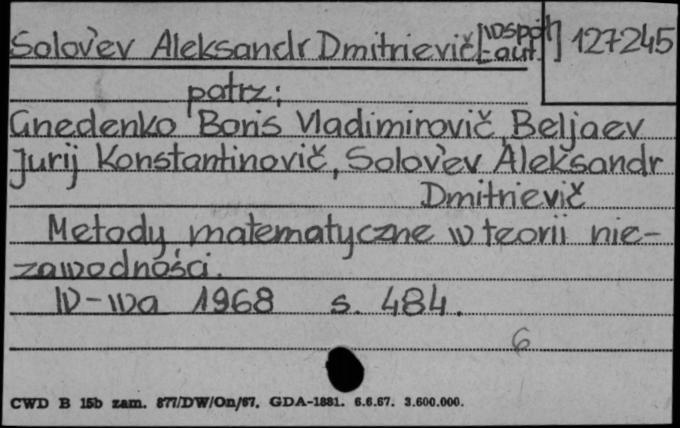 Solov'ev Aleksandr Dmitrievič [współ-aut.] 127245
patrz:
Gnedenko Boris Vladimirovič, Beljaev
Jurij Konstantinovič, Solov'ev Aleksandr
Dmitrievič
Metody matematyczne w teorii nie-
zawodności.
W-wa 1968 s. 484.
6
CWD B 15b zam. 877/DW/On/67. GDA-1881. 6.6.67. 3.600.000.